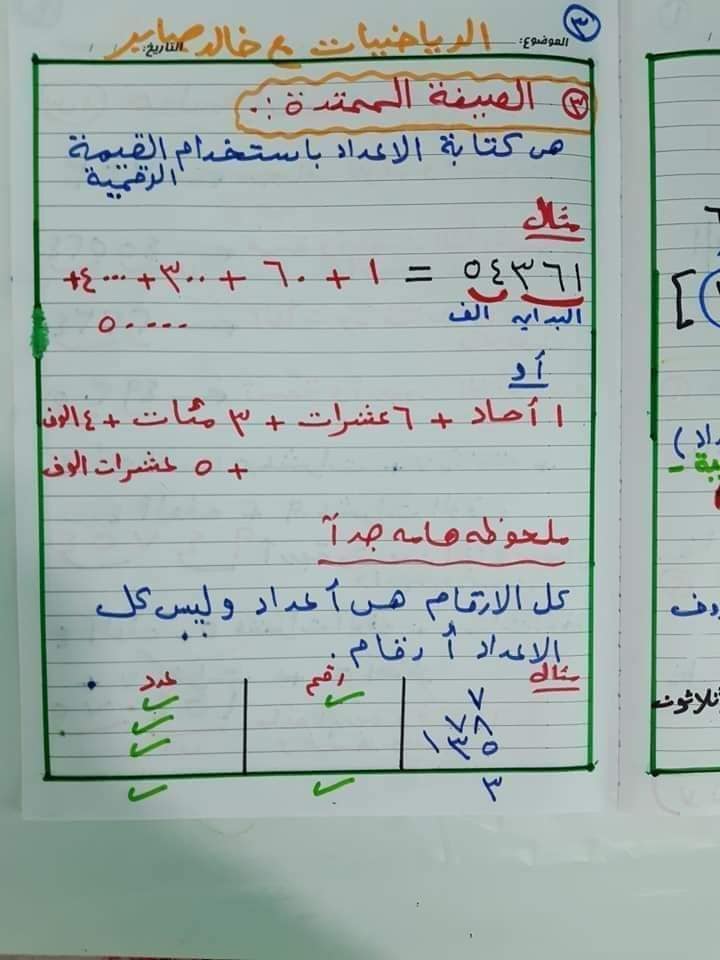 ٣
الرياضيات مع خالد صابر
الموضوع:
التاريخ:
٣ الصيغة الممتدة :.
هى كتابة الاعداد باستخدام القيمة
الرقمية
مثال
٥٤٣٦١ = ١ + ٦٠ + ٣٠٠ + ٤٠٠٠ +
البدايه الف
٥٠٠٠٠
أو
١ أحاد + ٦ عشرات + ٣ مئات + ٤ الوف
+ ٥ عشرات الوف
ملحوظه هامه جداً
كل الارقام هى أعداد وليس كل
الاعداد أرقام.
مثال رقم عدد
٧ ✓ ✓
٧٨ ✓
١٣٥ ✓
٣ ✓ ✓